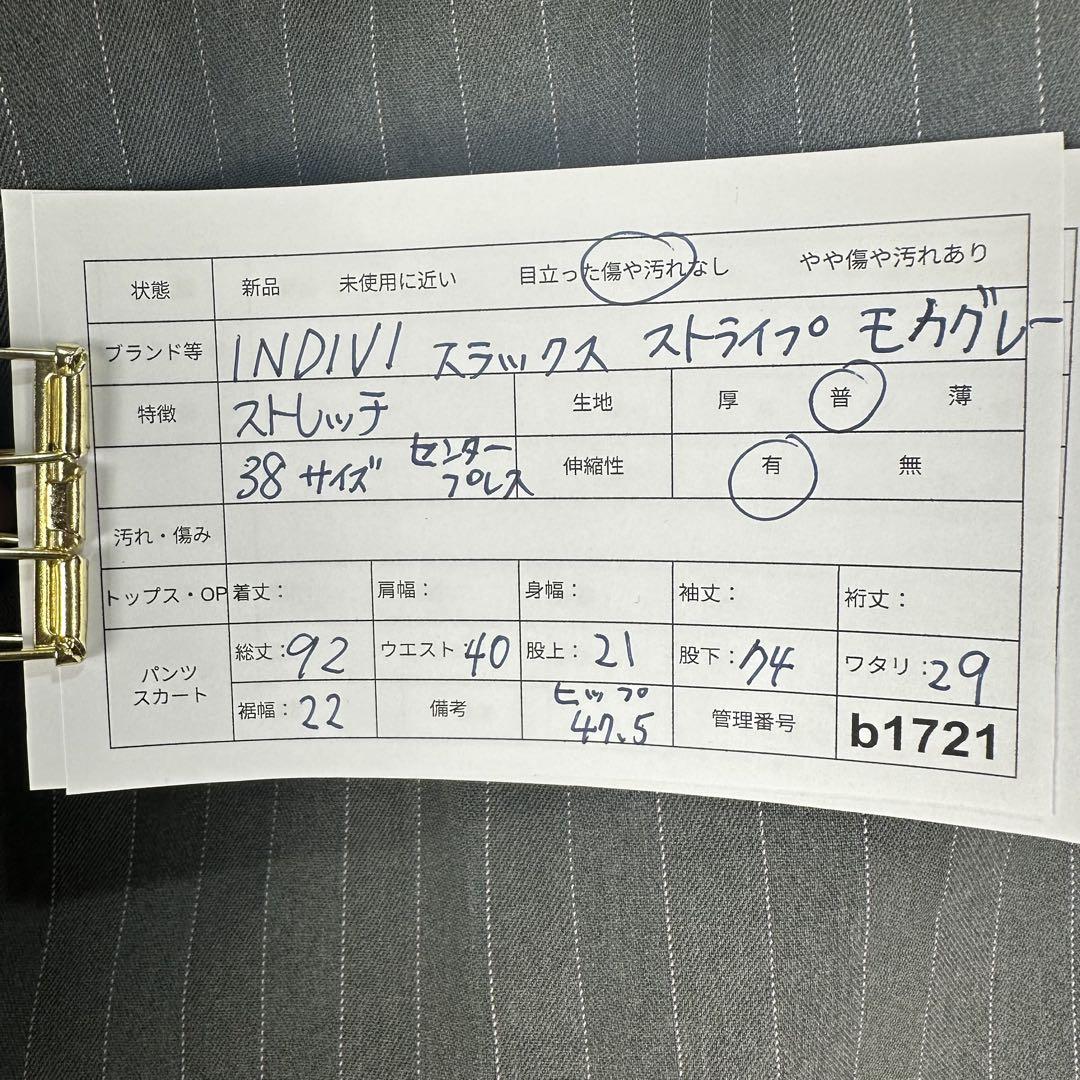 状態 新品 未使用に近い 目立った傷や汚れなし やや傷や汚れあり
ブランド等 INDIVI スラックス ストライプ モカグレー
特徴 ストレッチ 生地 厚 普 薄
38サイズ センタープレス 伸縮性 有 無
汚れ・傷み
トップス・OP 着丈： 肩幅： 身幅： 袖丈： 裄丈：
パンツ スカート 総丈：92 ウエスト：40 股上：21 股下：74 ワタリ：29
裾幅：22 備考 ヒップ 47.5 管理番号 b1721